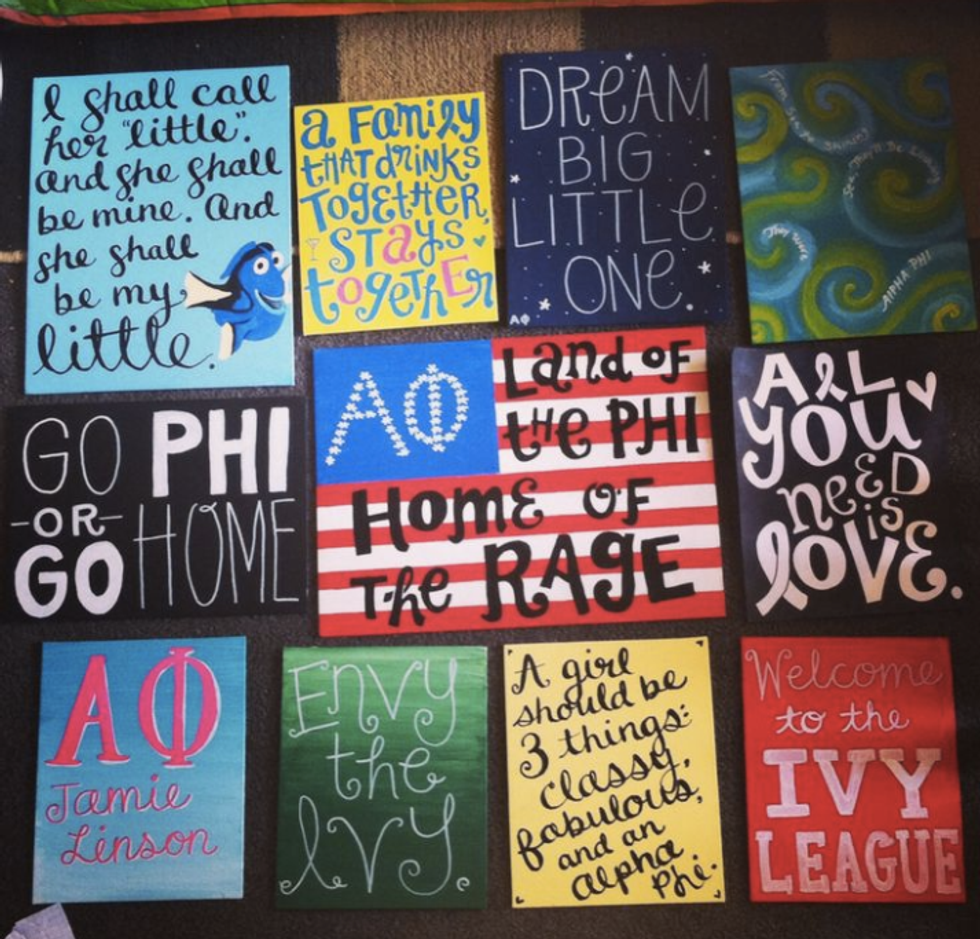 I shall call
her "little".
and she shall
be mine. And
she shall
be my
little.
a Family
THAT drinks
TogetHer,
STays
togetHEr
DReAM
BIG
LITTLe
ONe.
ΑΦ
They were
AlPHA PHI
GO PHI
-OR-
GO HOME
ΑΦ
Land oF
tHe PHI
Home oF
The RAgE
All
you
neED
is
loVE.
ΑΦ
Jamie
Linson
Envy
the
Ivy.
A girl
should be
3 things:
classy,
fabulous,
and an
alpha
Phi.
Welcome
to the
IVY
LEAGUE